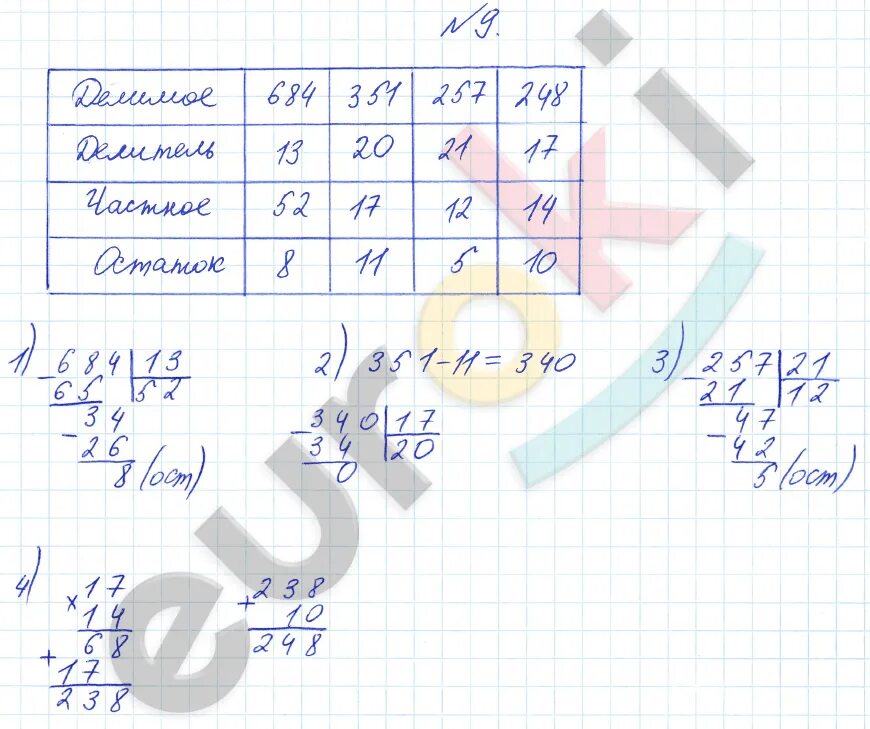 №9.
Делимое 684 351 257 248
Делитель 13 20 21 17
Частное 52 17 12 14
Остаток 8 11 5 10
1) 684 13
- 65 52
34
- 26
8 (ост)
2) 351-11=340
- 340 17
34 20
0
3) - 257 21
21 12
47
- 42
5 (ост)
4) × 17
14
68
+ 17
238
+ 238
10
248
euroki